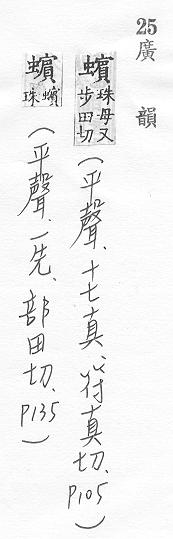 25廣韻
蠙珠母又步田切(平聲、十七真、符真切、P105)
蠙蠙珠(平聲、一先、部田切、P135)